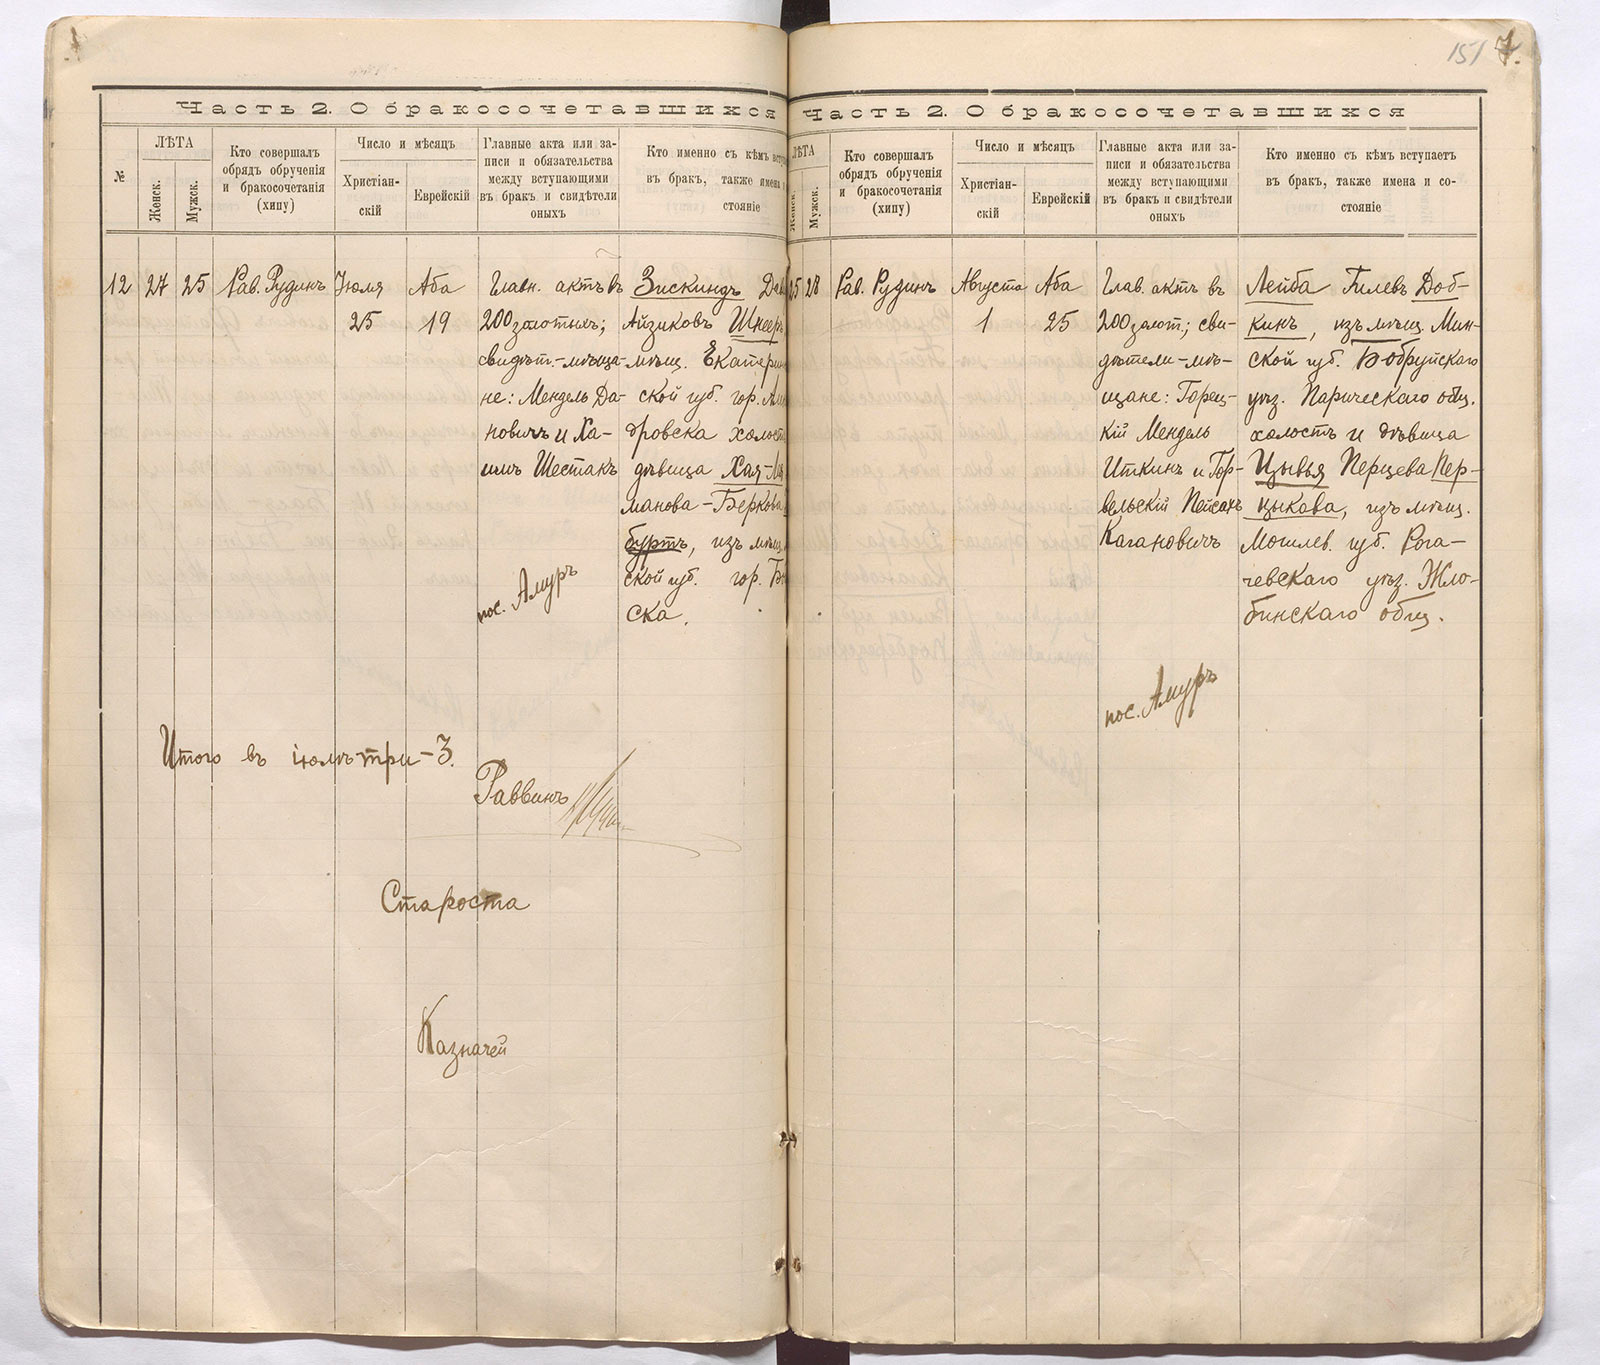 151 7.
Часть 2. О бракосочетавшихся
№
ЛѢТА
Женск.
Мужск.
Кто совершалъ
обрядъ обрученія
и бракосочетанія
(хипу)
Число и мѣсяцъ
Христіан-
скій
Еврейскій
Главные акта или за-
писи и обязательства
между вступающими
въ бракъ и свидѣтели
оныхъ
Кто именно съ кѣмъ
въ бракъ, также имена
стояніе
12
27
25
Рав. Рудинъ
Іюля
25
Аба
19
Главн. актъ въ
200 золотыхъ;
свидѣт.-мѣща-
не: Мендель Да-
новичъ и Ха-
имъ Шестакъ
пос. Амуръ
Зискиндъ
Айзиковъ Шнеер
мѣщ. Екатерин
ской губ. гор.
дровска холост
дѣвица Хая-
манова-Беркова
буртъ, изъ мѣщ.
ской губ. гор.
ска.
Итого въ іюлѣ три-3.
Раввинъ
Староста
Казначей
Часть 2. О бракосочетавшихся
ЛѢТА
Женск.
Мужск.
Кто совершалъ
обрядъ обрученія
и бракосочетанія
(хипу)
Число и мѣсяцъ
Христіан-
скій
Еврейскій
Главные акта или за-
писи и обязательства
между вступающими
въ бракъ и свидѣтели
оныхъ
Кто именно съ кѣмъ вступаетъ
въ бракъ, также имена и со-
стояніе
28
Рав. Рудинъ
Августа
1
Аба
25
Глав. актъ въ
200 золот.; сви-
дѣтели-мѣ-
щане: Горец-
кій Мендель
Иткинъ и Гор-
вельскій Пейсахъ
Кагановичъ
пос. Амуръ
Лейба Гилевъ Доб-
кинъ, изъ мѣщ. Мин-
ской губ. Бобруйскаго
уѣз. Парическаго общ.
холостъ и дѣвица
Цывья Перцева Пер-
цыкова, изъ мѣщ.
Могилев. губ. Рога-
чевскаго уѣз. Жло-
бинскаго общ.